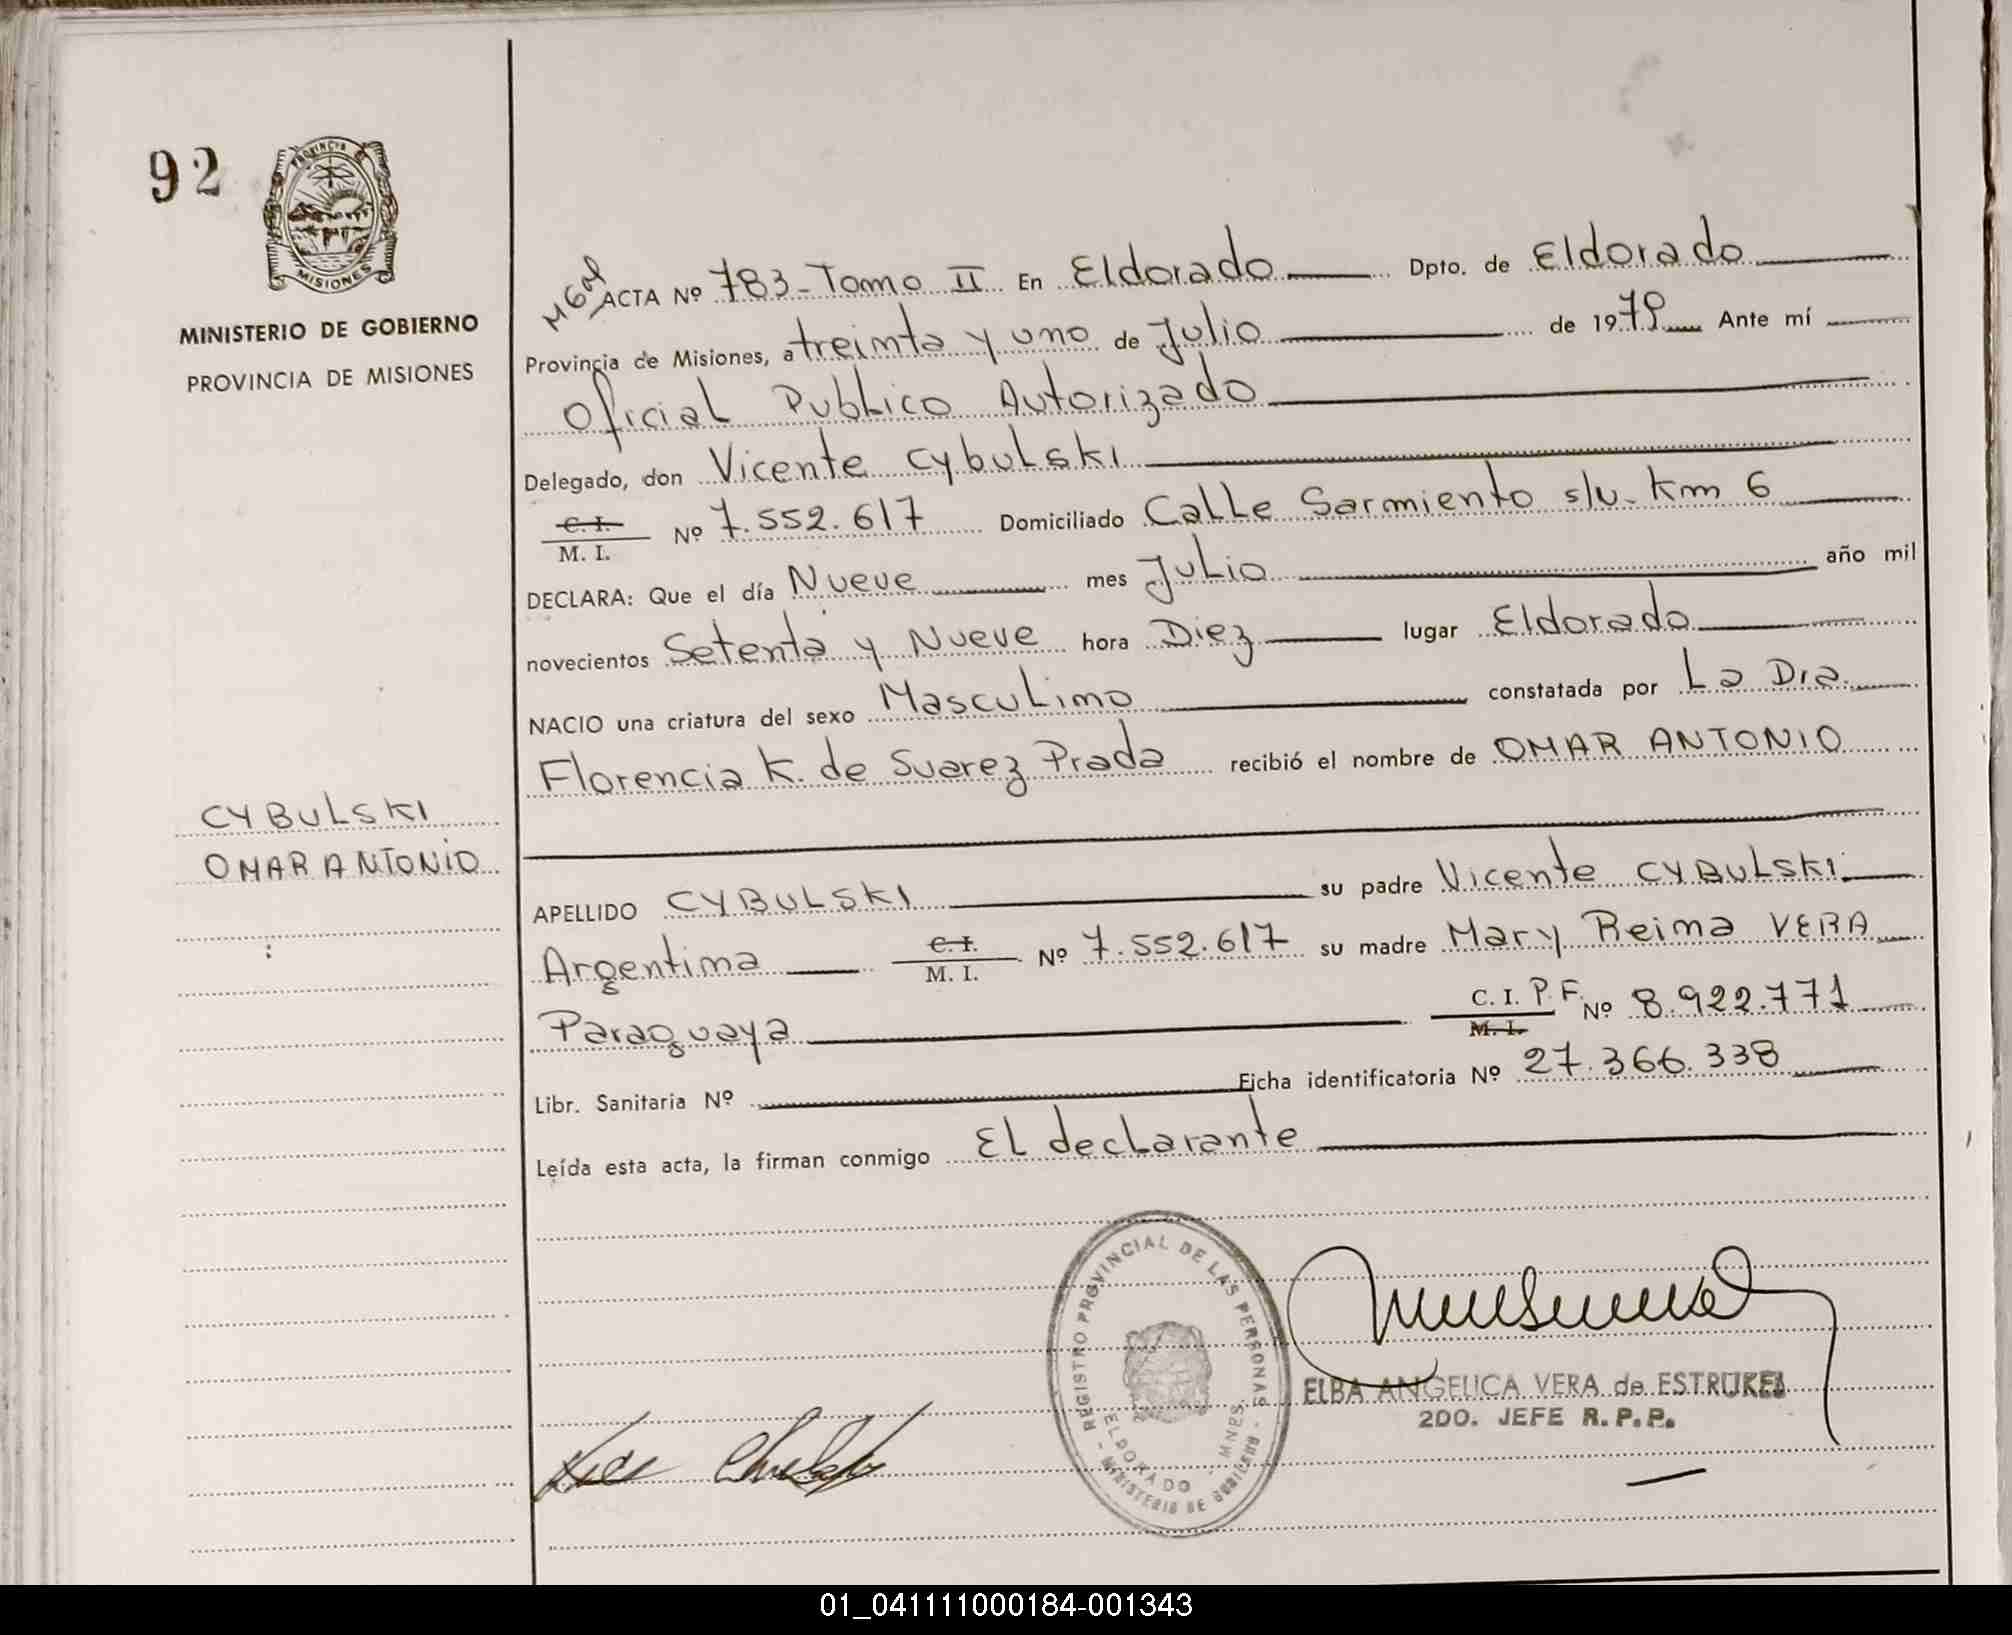 92
PROVINCIA DE
MISIONES
MINISTERIO DE GOBIERNO
PROVINCIA DE MISIONES
CYBULSKI
OMAR ANTONIO
ACTA Nº 783-Tomo II En Eldorado Dpto. de Eldorado
Provincia de Misiones, a treinta y uno de Julio de 1979 Ante mí
Oficial Publico Autorizado
Delegado, don Vicente Cybulski
C. I.
M. I. Nº 7.552.617 Domiciliado Calle Sarmiento s/u-Km 6
DECLARA: Que el día Nueve mes Julio año mil
novecientos Setenta y Nueve hora Diez lugar Eldorado
NACIO una criatura del sexo Masculino constatada por La Dra.
Florencia K. de Suarez Prada recibió el nombre de OMAR ANTONIO
APELLIDO CYBULSKI su padre Vicente CYBULSKI
Argentina C. I.
M. I. Nº 7.552.617 su madre Mary Reina VERA
Paraguaya C. I. P. F. Nº 8.922.771
M. I.
Libr. Sanitaria Nº Ficha identificatoria Nº 27.366.338
Leída esta acta, la firman conmigo El declarante
REGISTRO PROVINCIAL DE LAS PERSONAS
ELDORADO - MNES.
- MINISTERIO DE GOBIERNO -
ELBA ANGELICA VERA de ESTRUKEL
2DO. JEFE R.P.P.
01_041111000184-001343